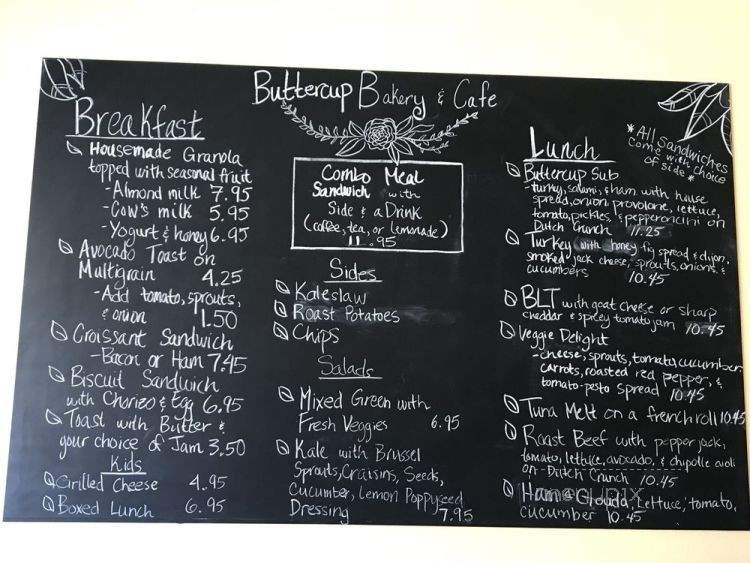 Buttercup Bakery & Cafe
Breakfast
Housemade Granola
topped with seasonal fruit
-Almond milk 7.95
-Cow's milk 5.95
-Yogurt & honey 6.95
Avocado Toast on
Multigrain 4.25
-Add tomato, sprouts,
& onion 1.50
Croissant Sandwich
-Bacon or Ham 7.45
Biscuit Sandwich
with Chorizo & Egg 6.95
Toast with Butter &
your choice of Jam 3.50
Kids
Grilled Cheese 4.95
Boxed Lunch 6.95
Combo Meal
Sandwich with
Side & a Drink
(coffee, tea, or lemonade)
11.95
Sides
Kaleslaw
Roast Potatoes
Chips
Salads
Mixed Green with
Fresh Veggies 6.95
Kale with Brussel
Sprouts, Craisins, Seeds,
Cucumber, Lemon Poppyseed
Dressing 7.95
Lunch
*All Sandwiches
come with choice
of side*
Buttercup Sub
-turkey, salami, & ham with house
spread, onion, provolone, lettuce,
tomato, pickles, & pepperoncini on
Dutch Crunch 11.25
Turkey with honey fig spread & dijon,
smoked jack cheese, sprouts, onions, &
cucumbers 10.45
BLT with goat cheese or sharp
cheddar & spicy tomato jam 10.45
Veggie Delight
-cheese, sprouts, tomato, cucumber,
carrots, roasted red pepper, &
tomato-pesto spread 10.45
Tuna Melt on a french roll 10.45
Roast Beef with pepper jack,
tomato, lettuce, avocado, & chipotle aioli
on Dutch Crunch 10.45
Ham & Gouda, lettuce, tomato,
cucumber 10.45